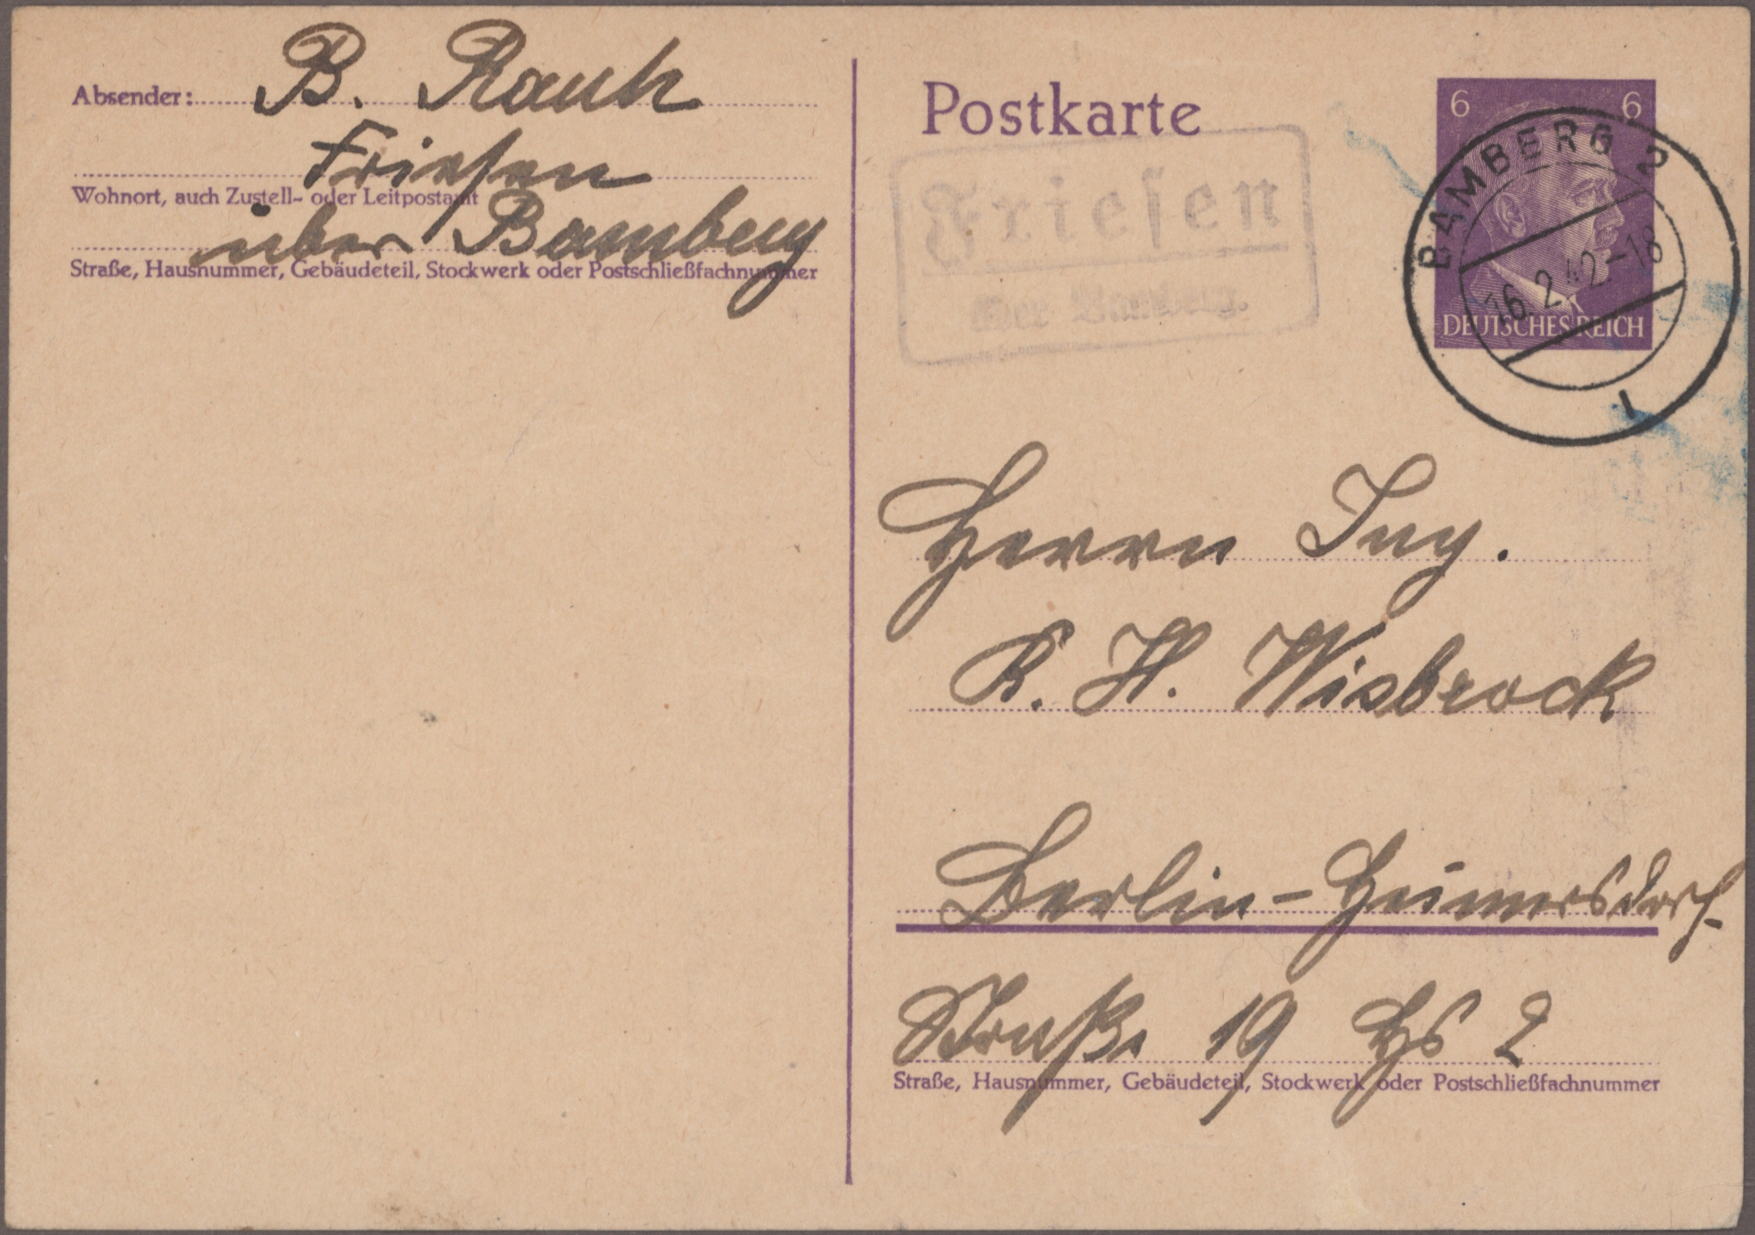 Absender: B. Rauh
Friesen
Wohnort, auch Zustell- oder Leitpostamt
über Bamberg
Straße, Hausnummer, Gebäudeteil, Stockwerk oder Postschließfachnummer
Postkarte
Friesen
über Bamberg.
6 6
DEUTSCHES REICH
BAMBERG 2
16.2.42.-18
1
Herrn Ing.
K. H. Wisbrock
Berlin-Heinersdorf
Straße 19 Hs 2
Straße, Hausnummer, Gebäudeteil, Stockwerk oder Postschließfachnummer